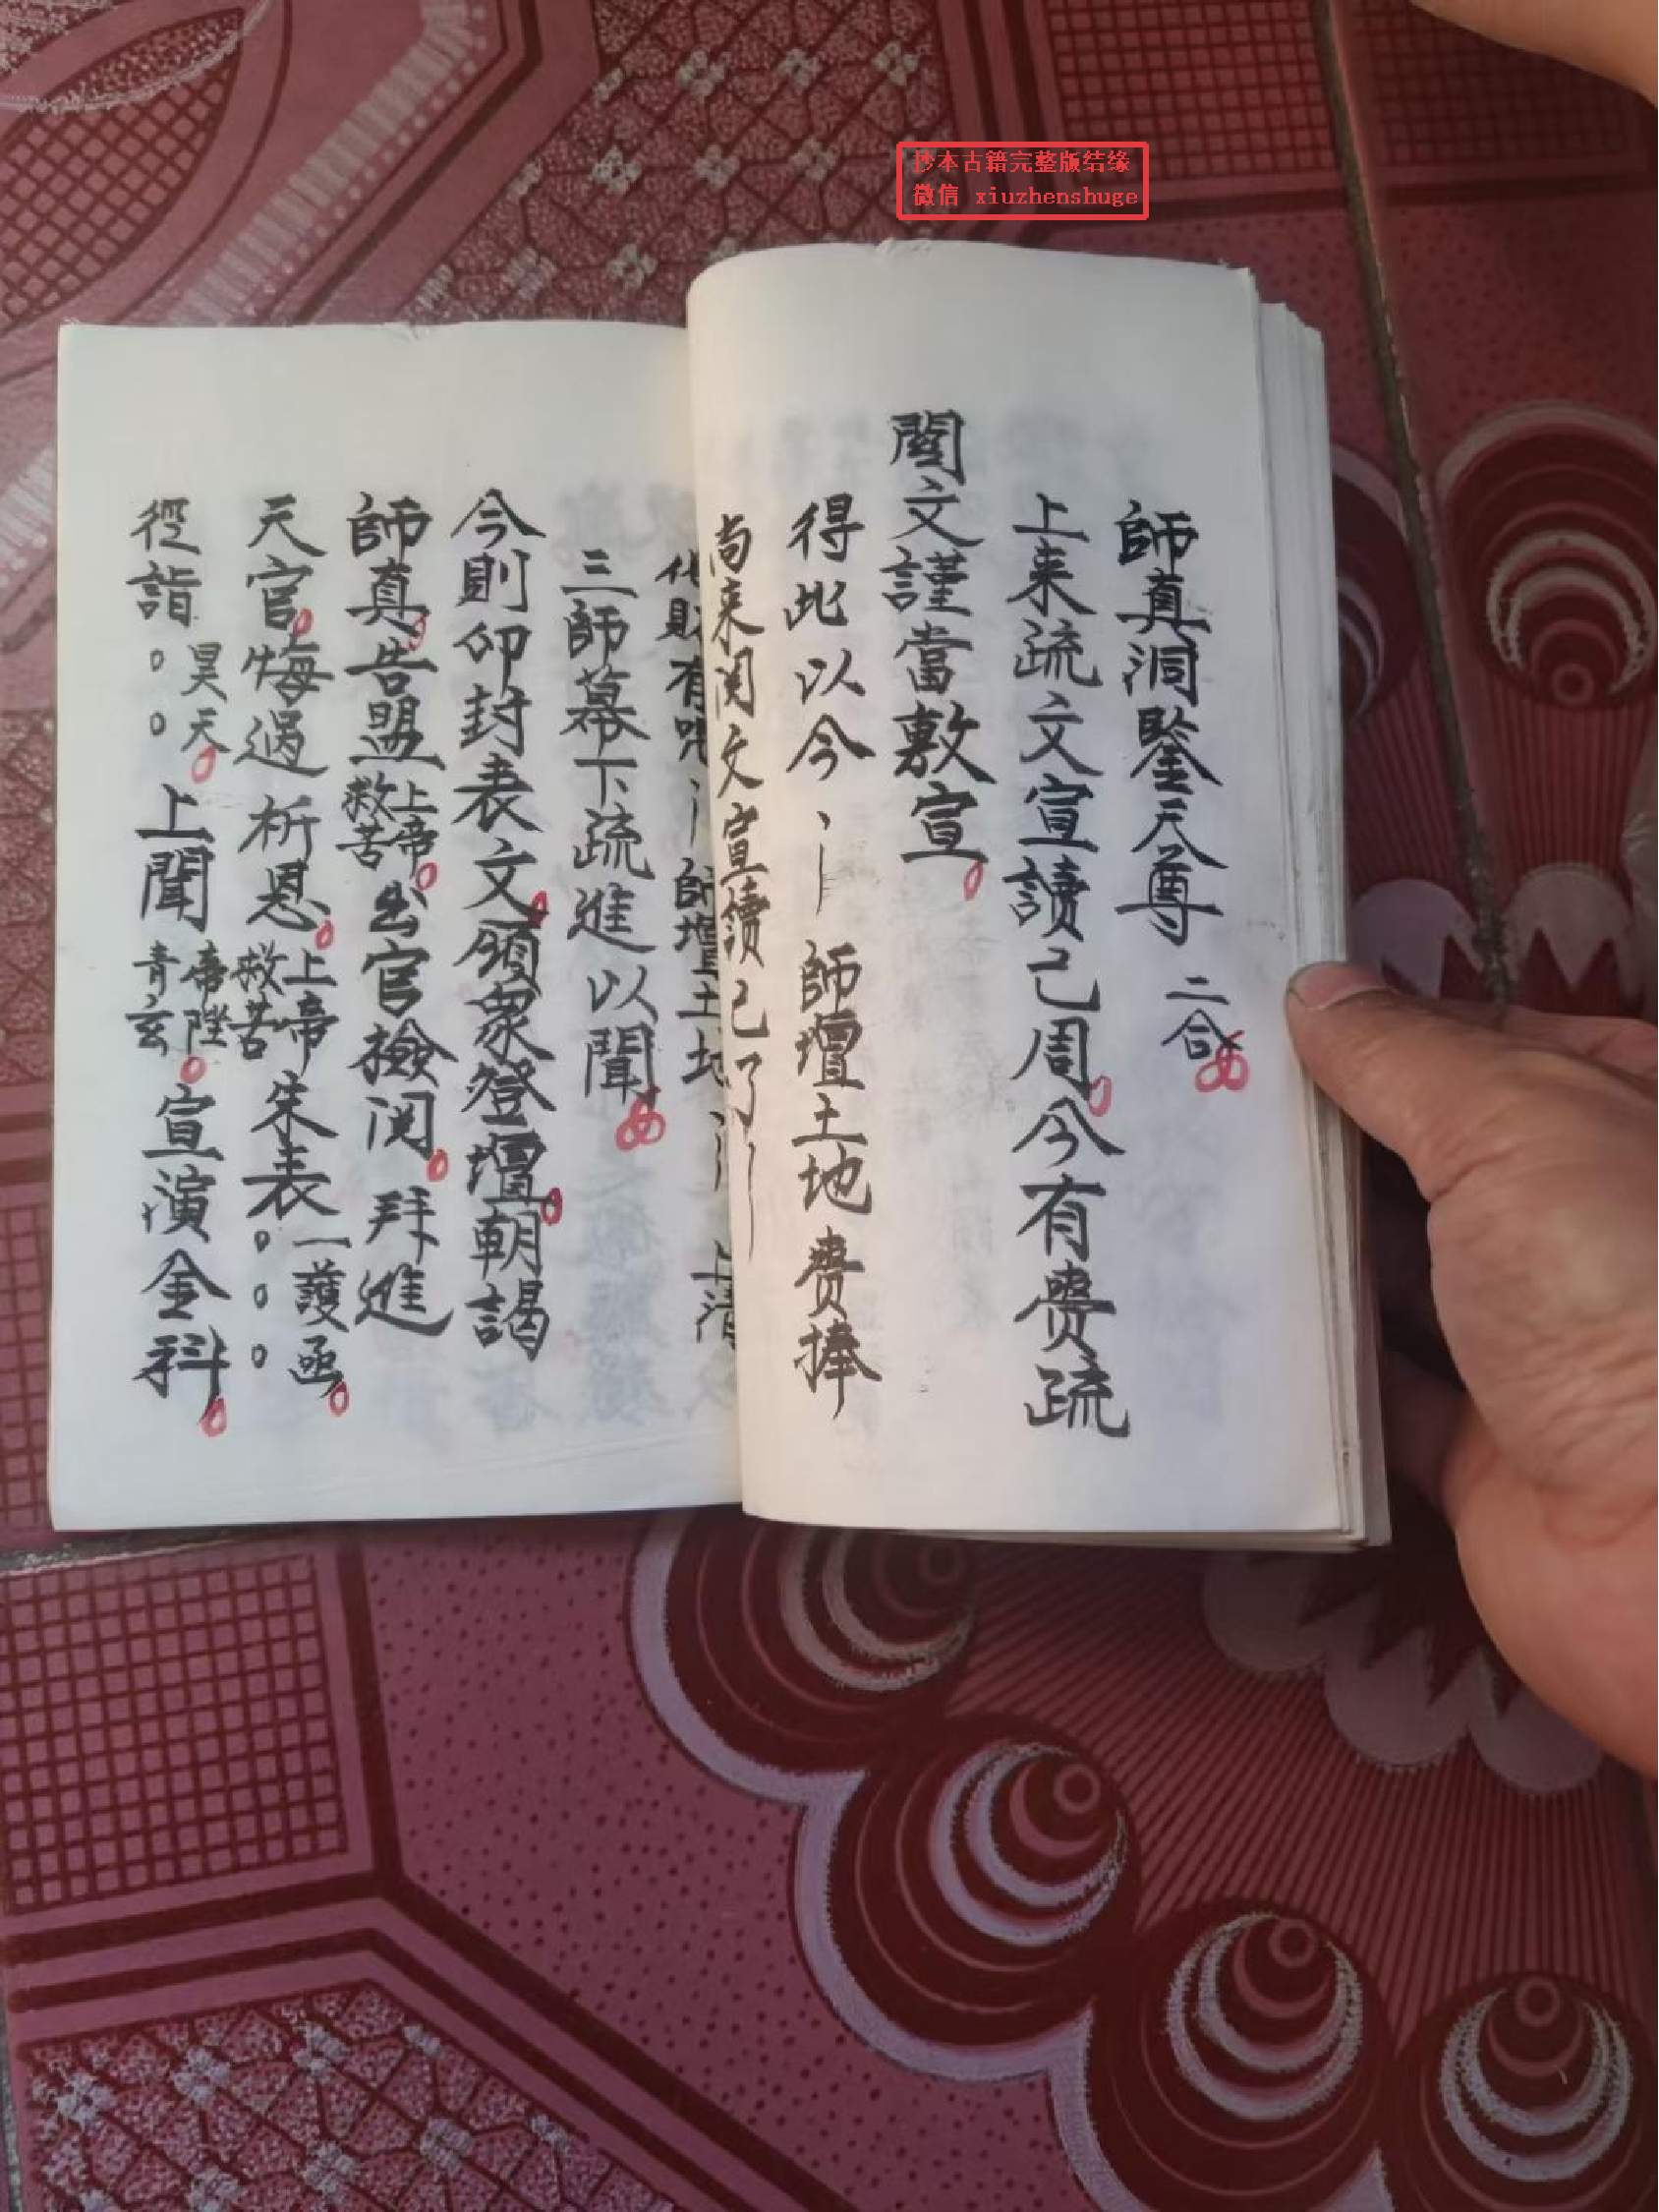 抄本古籍完整版结缘
微信 xiuzhenshuge
師真洞鋻天尊 二合
上来疏文宣讀己周今有賷疏
関文謹當敷宣
得此以今 師壇土地賷捧
尚来関文宣讀已了
化財有咒 師壇土地 上清
三師幕下疏進以聞
今則卯封表文頒衆登壇朝謁
師真告盟上帝救苦出官檢阅拜進
天官悔過析恩上帝救苦朱表。。。一護函
徑詣。。昊天上聞帝陛青玄宣演金科